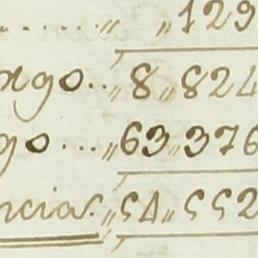 ......„ „129
ngo..„8„824
go...„63„376
ncia.„54„552